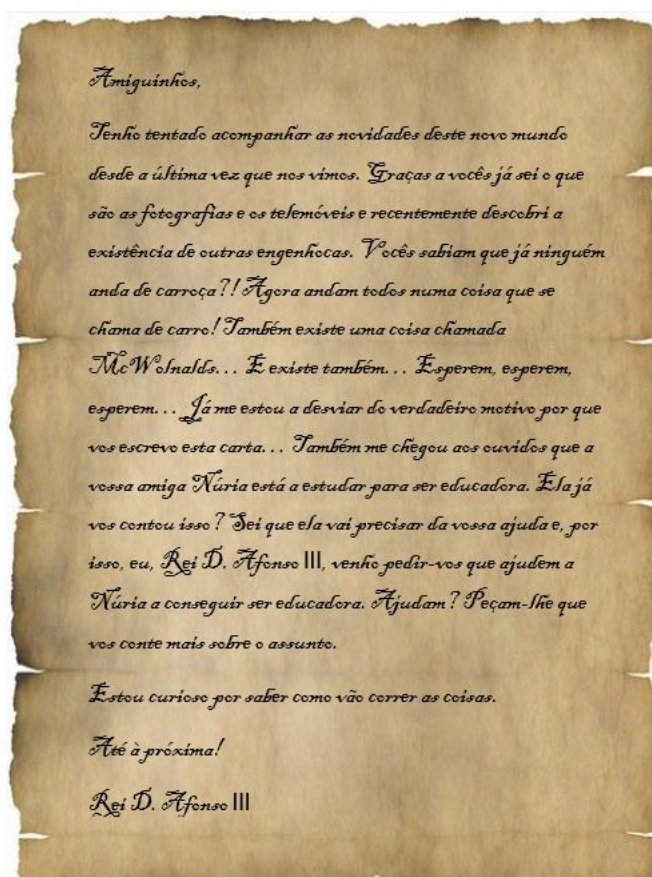 Amiguinhos,
Tenho tentado acompanhar as novidades deste novo mundo
desde a última vez que nos vimos. Graças a vocês já sei o que
são as fotografias e os telemóveis e recentemente descobri a
existência de outras engenhocas. Vocês sabiam que já ninguém
anda de carroça?! Agora andam todos numa coisa que se
chama de carro! Também existe uma coisa chamada
McWolnalds... E existe também... Esperem, esperem,
esperem... Já me estou a desviar do verdadeiro motivo por que
vos escrevo esta carta... Também me chegou aos ouvidos que a
vossa amiga Núria está a estudar para ser educadora. Ela já
vos contou isso? Sei que ela vai precisar da vossa ajuda e, por
isso, eu, Rei D. Afonso III, venho pedir-vos que ajudem a
Núria a conseguir ser educadora. Ajudam? Peçam-lhe que
vos conte mais sobre o assunto.
Estou curioso por saber como vão correr as coisas.
Até à próxima!
Rei D. Afonso III